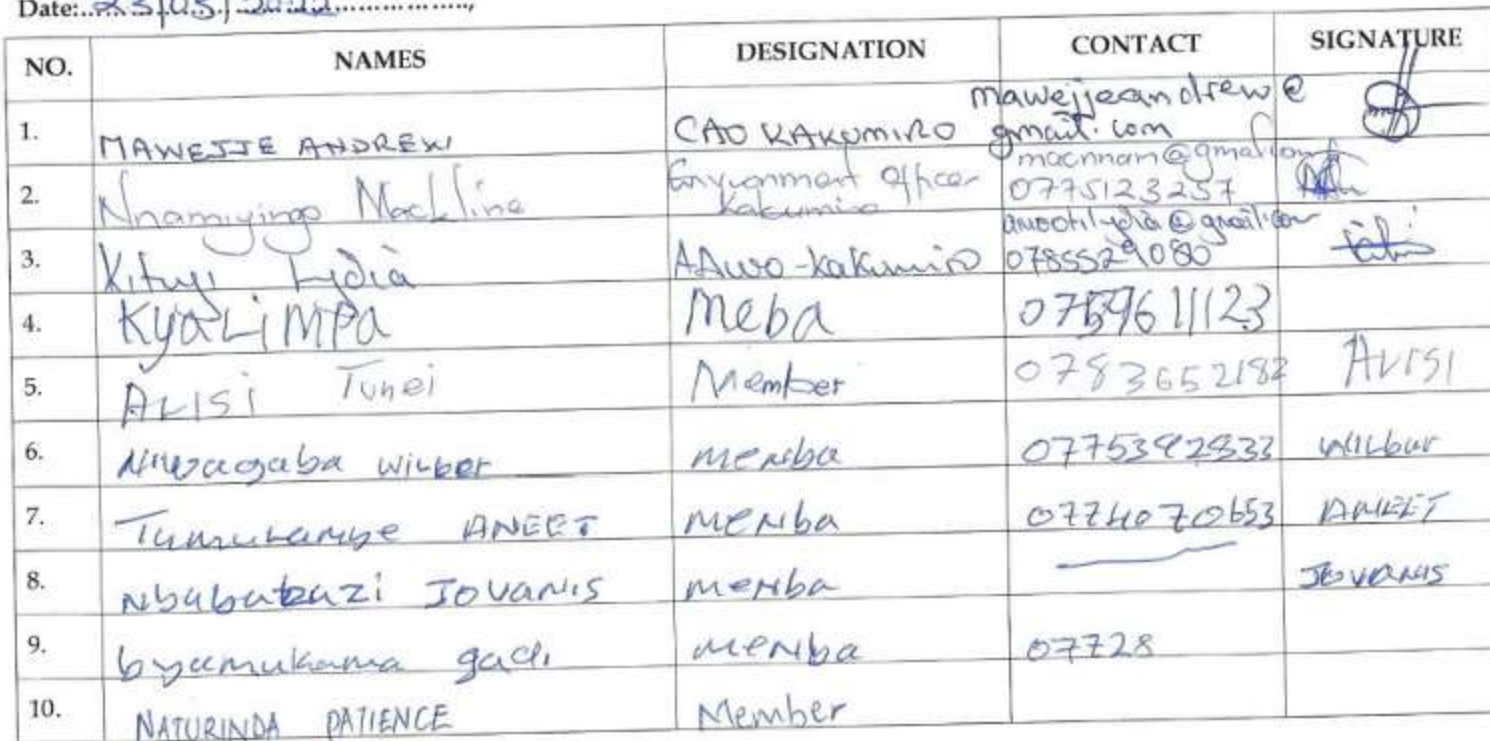 Date: 23/03/2022
NO. NAMES DESIGNATION CONTACT SIGNATURE
1. MAWEJJE ANDREW CAO KAKUMIRO mawejjeandrew@gmail.com
2. Nnamiyingo Mackline Environment Officer Kakumiro macnnam@gmail.com 0775123257
3. Kituyi Lydia AAWO-Kakumiro 0785529080
4. KyaLiMPa Meba
5. ALISI Tunei Member 0783652182 ALISI
6. Niwagaba Wilber memba 0775392833 Wilbur
7. Tumuhambe ANEET memba 0774070653 ANEET
8. JOVANIS memba JOVANIS
9. byamukama gadi memba 07728
10. NATURINDA PATIENCE Member